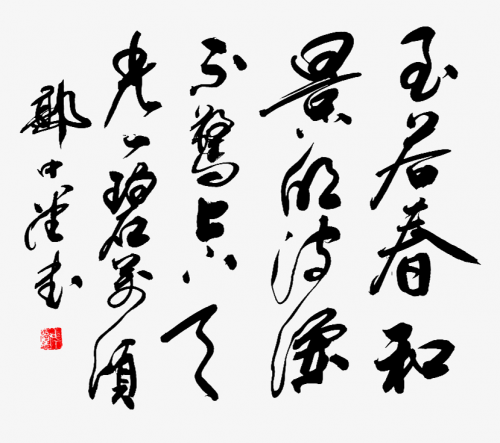 至若春和
景明波澜
不驚上下天
光一碧萬頃
中书